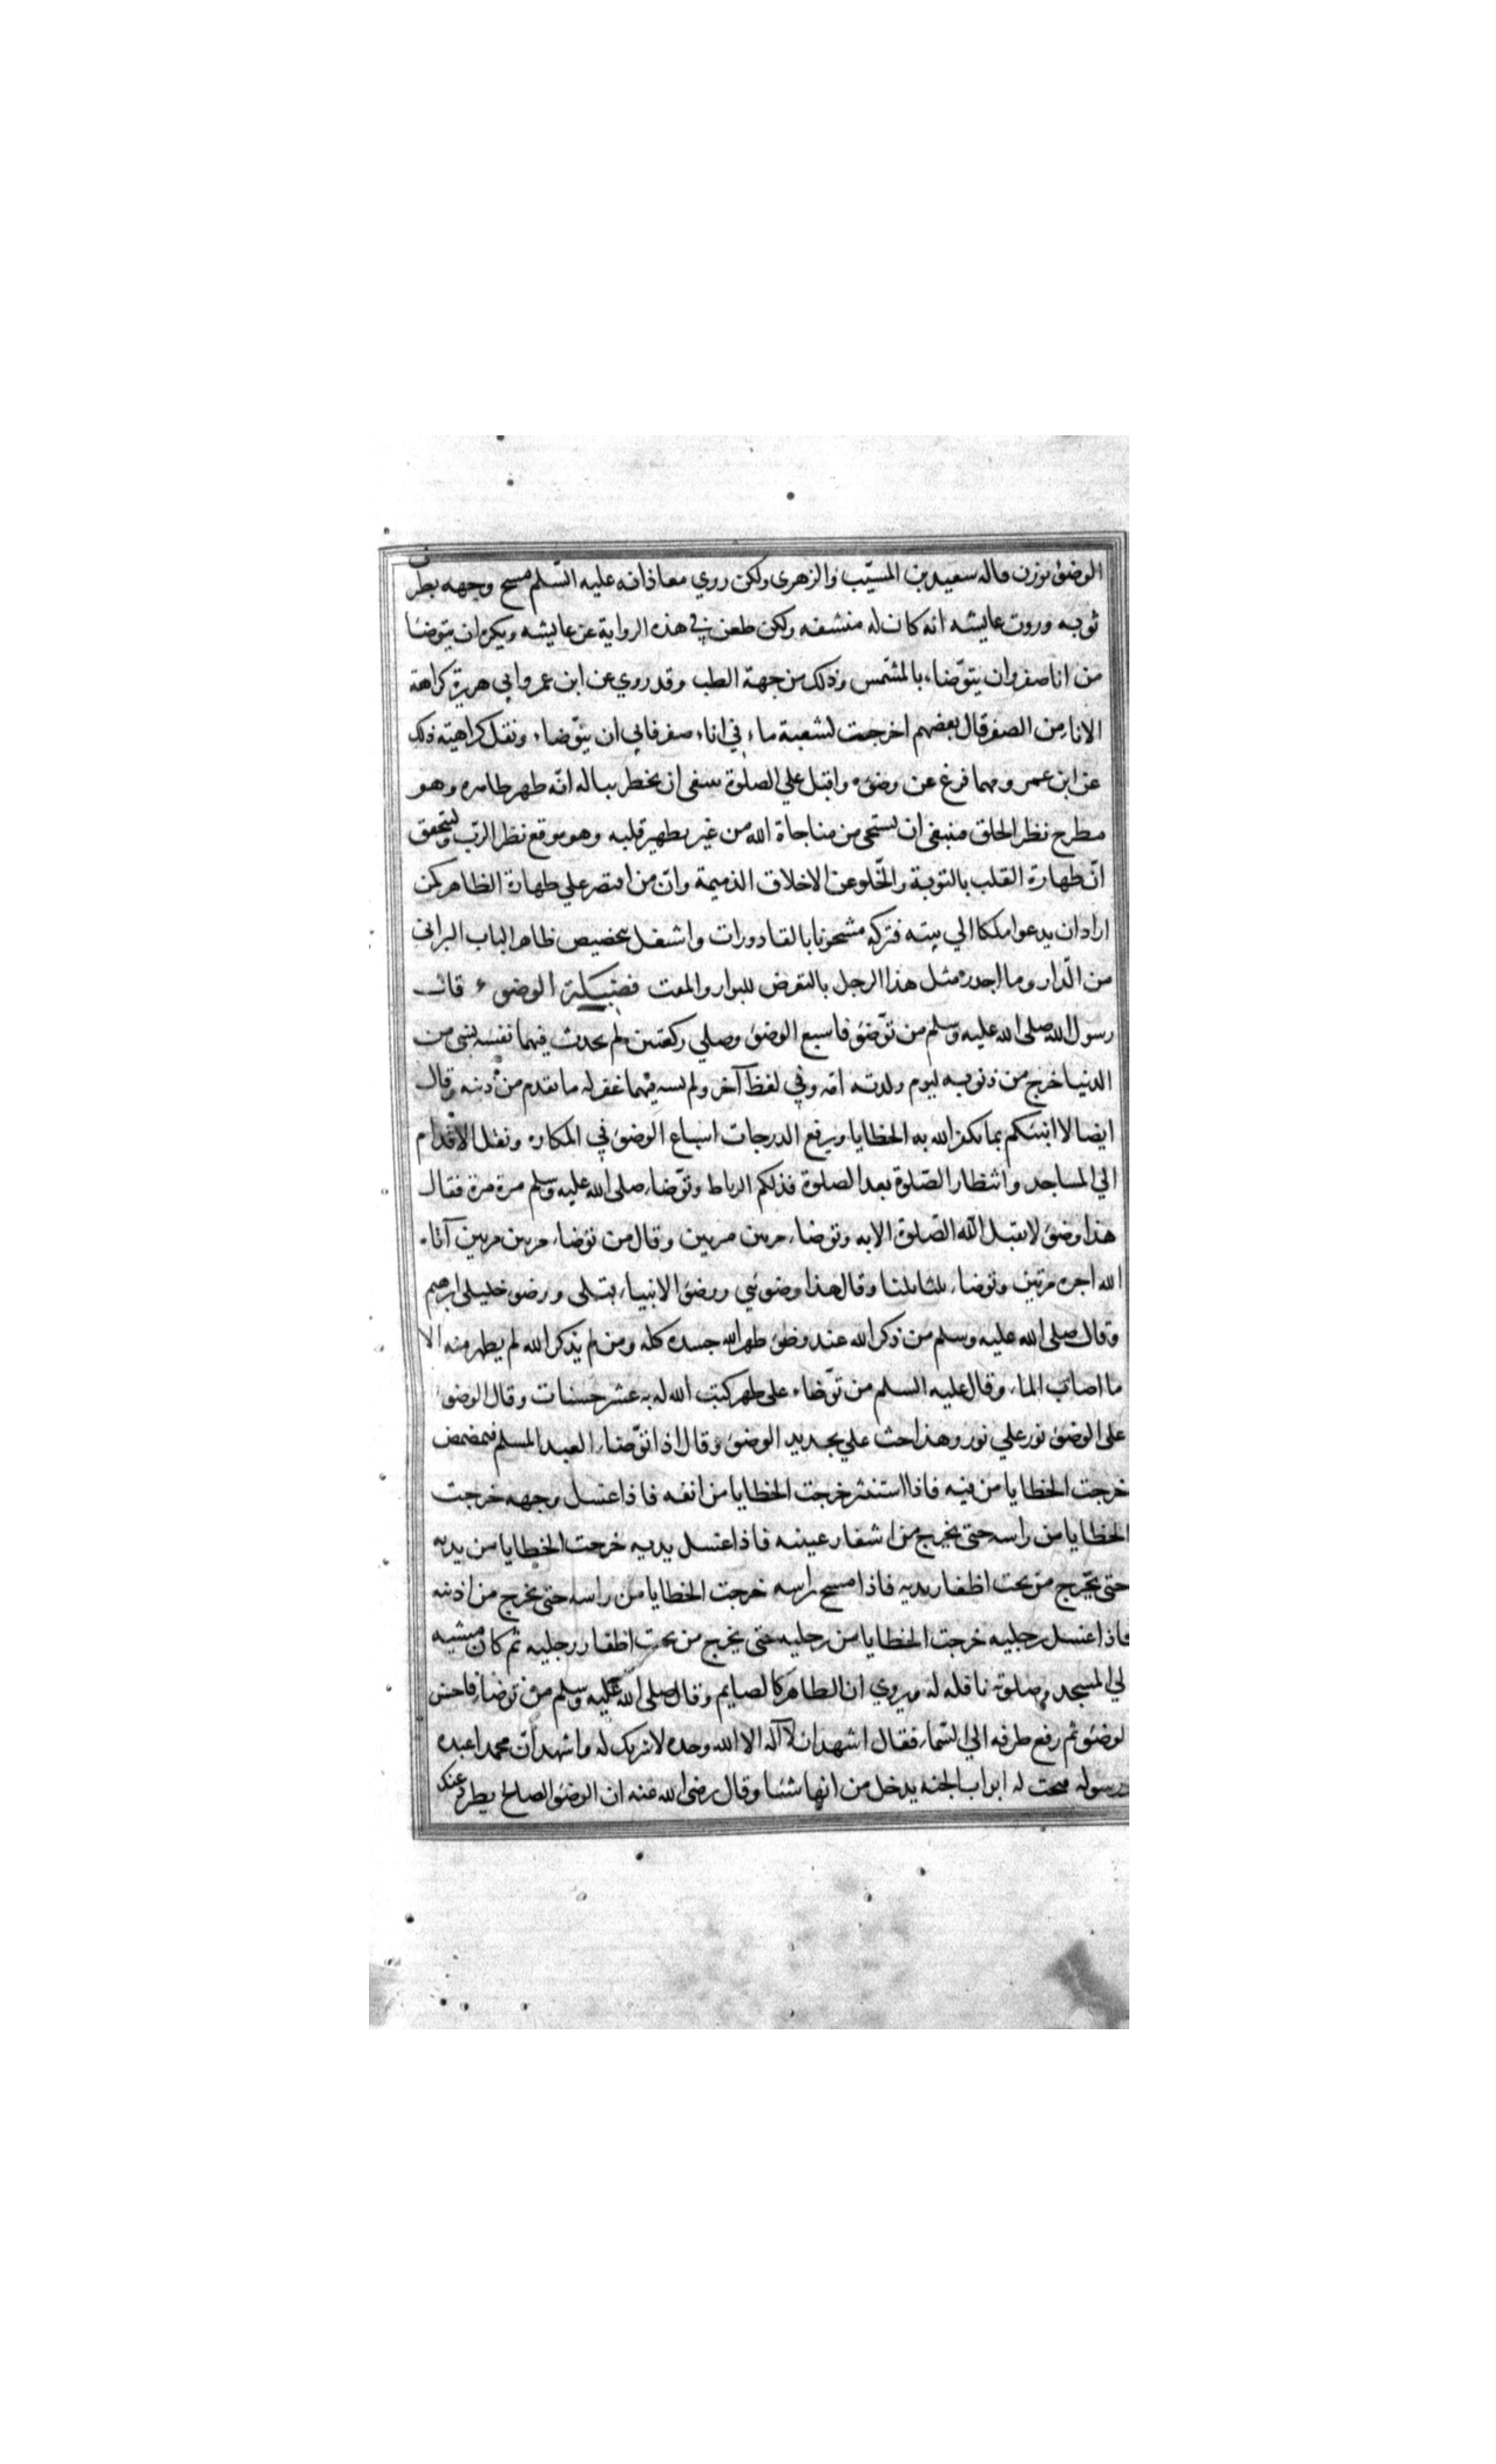 الوضوء يوزن قاله سعيد بن المسيّب والزهري ولكن روي معاذ انه عليه السّلم مسح وجهه بطرف
ثوبه وروت عايشه انه كان له منشفه ولكن طعن في هذه الرواية عن عايشه ويكره ان يتوضا
من انا صفر وان يتوّضاء بالمشّمس وذلك من جهة الطب وقد روي عن ابن عمر وابي هريرة كراهة
الانا من الصفر قال بعضهم اخرجت لشعبة ماء في اناء صفر فابي ان يتّوضاء ونقل كراهيته ذلك
عن ابن عمر ومهما فرغ عن وضوء واقبل علي الصلوة ينبغي ان يخطر بباله انّه طهر ظاهره وهو
مطرح نظر الخلق فينبغي ان يستحي من مناجاة الله من غير تطهير قلبه وهو موقع نظر الرّب وليتحقق
انّ طهارة القلب بالتوبة والخّلو عن الاخلاق الذميمة وانّ من اقتصر علي طهارة الظاهر كمن
اراد ان يدعوا ملكا الي بيته فتركه مشحونا بالقادورات واشتغل بتخصيص ظاهر الباب البراني
من الدّار وما اجدره مثل هذا الرجل بالتعرض للبوار والمقت فضيلة الوضوء قال
رسول الله صلى الله عليه وسلم من توّضئ فاسبغ الوضئ وصلي ركعتين ولم يحدث فيهما نفسه بشي من
الدنيا خرج من ذنوبه ليوم ولدته امّه وفي لفظ آخر ولم يسه فيهما غفر له ما تقدم من ذنبه وقال
ايضا الا انبئكم بما يكفر الله به الخطايا ويرفع الدرجات اسباغ الوضوء في المكاره ونقل الاقدام
الي المساجد وانتظار الصّلوة بعد الصلوة فذلكم الرباط وتوّضاء صلى الله عليه وسلم مرة مرة فقال
هذا وضوء لا يقبل الله الصّلوة الا به وتوضاء مرتين مرتين وقال من توضاء مرتين مرتين آتاه
الله اجره مرتين وتوضاء ثلثا ثلثا وقال هذا وضوئي ووضوء الانبياء قبلي ووضوء خليلي ابرهيم
وقال صلى الله عليه وسلم من ذكر الله عند وضوء طهر الله جسده كله ومن لم يذكر الله لم يطهر منه الا
ما اصاب الماء وقال عليه السلم من توّضاء على طهر كتب الله له به عشر حسنات وقال الوضوء
على الوضوء نور علي نور وهذا حث علي تجديد الوضوء وقال اذا توّضاء العبد المسلم فتمضمض
خرجت الخطايا من فيه فاذا استنثر خرجت الخطايا من انفه فاذا غسل وجهه خرجت
الخطايا من راسه حتى يخرج من اشفار عينيه فاذا غسل يديه خرجت الخطايا من يديه
حتى يخّرج من تحت اظفار يديه فاذا مسح راسه خرجت الخطايا من راسه حتى يخرج من اذنيه
فاذا غسل رجليه خرجت الخطايا من رجليه حتى يخرج من تحت اظفار رجليه ثم كان مشيه
لي المسجد وصلوته نافله له ويروي ان الطاهر كالصايم وقال صلى الله عليه وسلم من توضا فاحسن
لوضوء ثم رفع طرفه الي السّماء فقال اشهد ان لا آله الا الله وحده لا شريك له واشهد انّ محمدا عبده
ورسوله فتحت له ابواب الجنه يدخل من ايها شئا وقال رضي الله عنه ان الوضوء الصالح يطرد عنك